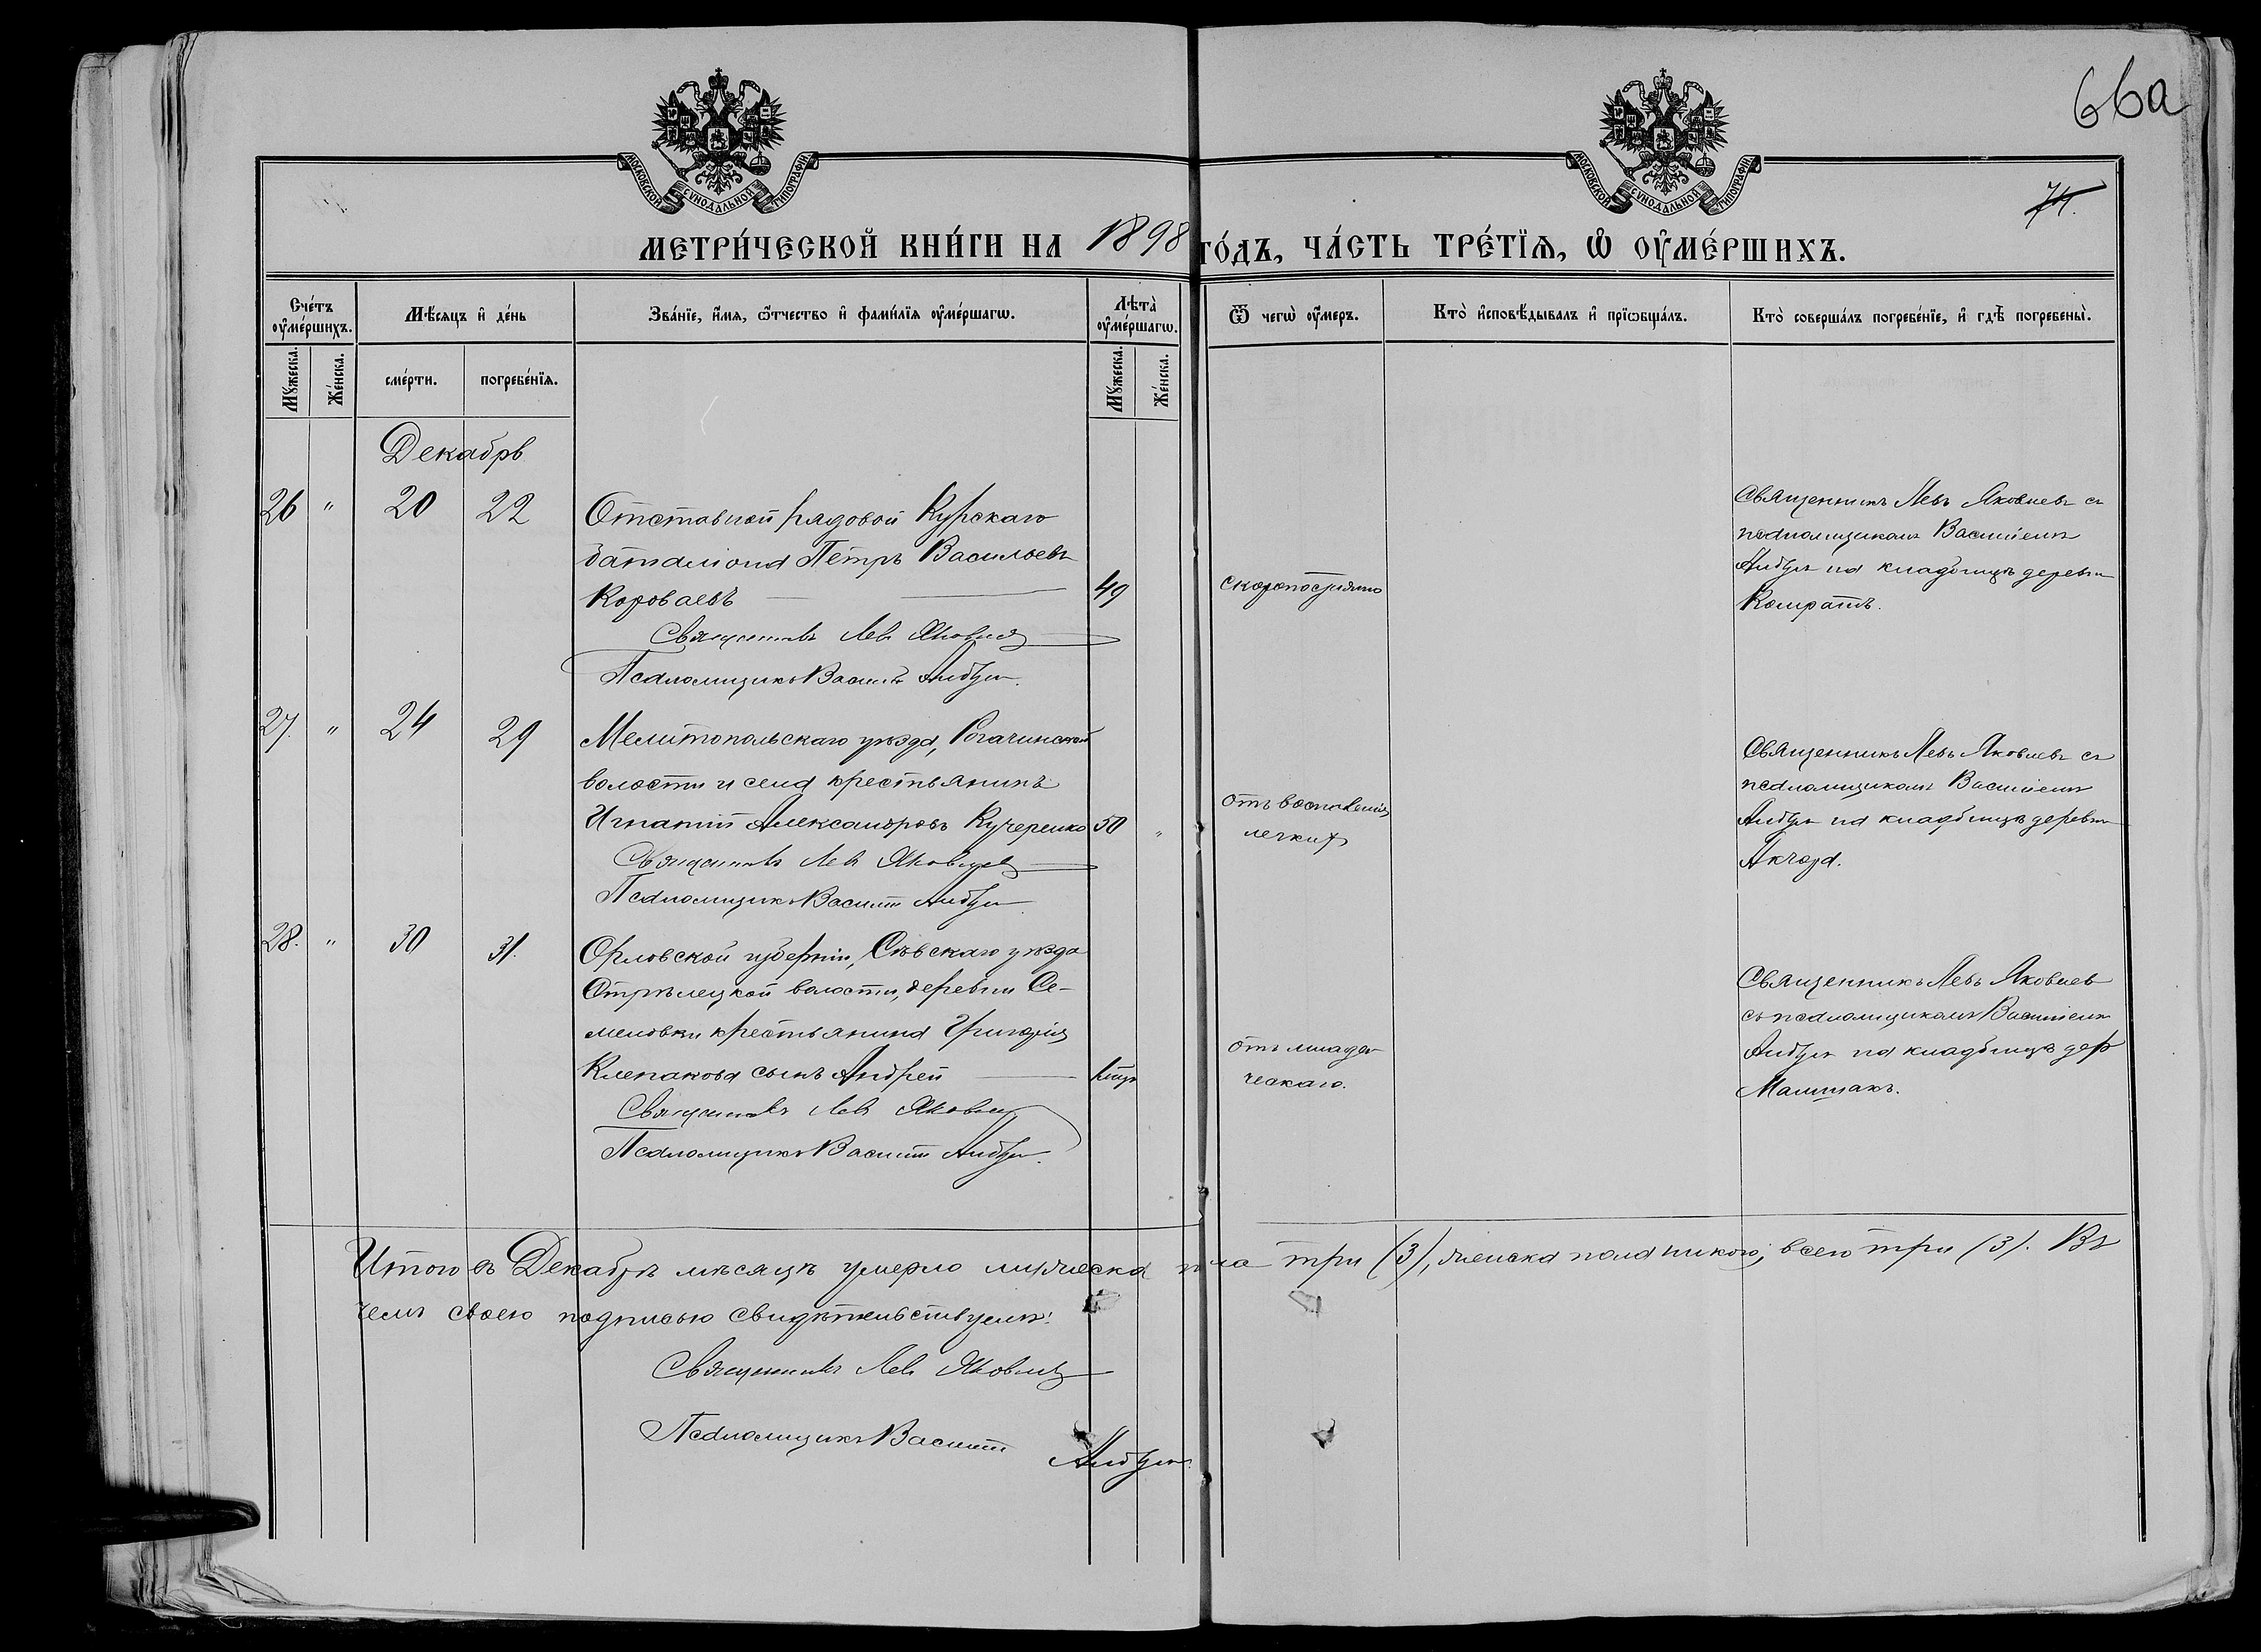 66а
74.
МОСКОВСКОЙ СѴНОДАЛЬНОЙ ТИПОГРАФІИ
МОСКОВСКОЙ СѴНОДАЛЬНОЙ ТИПОГРАФІИ
МЕТРИ́ЧЕСКОЙ КНИ́ГИ НА 1898 ГО́ДЪ, ЧА́СТЬ ТРЕ́ТЇѦ, Ѡ҆ ОУ҆МЕ́РШИХЪ.
Сче́тъ оу҆ме́ршихъ.
Мѣ́сяцъ и҆ де́нь
Зва́нїе, и҆́мя, ѻ҆́тчество и҆ фами́лїя оу҆ме́ршагѡ.
Лѣ́та оу҆ме́ршагѡ.
Ѿ чегѡ̀ оу҆́меръ.
Кто̀ и҆сповѣ́дывалъ и҆ прїѡбща́лъ.
Кто̀ соверша́лъ погребе́нїе, и҆ гдѣ̀ погребены̀.
Мꙋ́жеска.
Же́нска.
сме́рти.
погребе́нїя.
Мꙋ́жеска.
Же́нска.
Декабрь
26 " 20 22
Отставной рядовой Курскаго
баталіона Петръ Васильевъ
Короваевъ 49
Священникъ Левъ Яковлев
Псаломщикъ Василій
скоропостижно
Священникъ Левъ Яковлевъ съ
псаломщикомъ Василіемъ
на кладбищѣ деревни
Комратъ.
27. " 24 29
Мелитопольскаго уѣзда, Рогачинской
волости и села крестьянинъ
Игнатій Александровъ Кучеренко 50 "
Священникъ Левъ Яковлев
Псаломщикъ Василій
отъ воспаленія
легких
Священникъ Левъ Яковлевъ съ
псаломщикомъ Василіемъ
на кладбищѣ деревни
28. " 30 31.
Орловской губерніи, Сѣвскаго уѣзда
Стрѣлецкой волости, деревни Се-
меновки крестьянина Григорія
Клепакова сынъ Андрей
Священникъ Левъ Яковлев
Псаломщикъ Василій
отъ младен
ческаго.
Священникъ Левъ Яковлев
съ псаломщикомъ Василіемъ
на кладбищѣ дер
Итого въ Декабрѣ мѣсяцѣ умерло мужеска пола три (3), женска пола никого; всего три (3). Въ
чемъ своею подписью свидѣтельствуемъ:
Священникъ Левъ Яковлев
Псаломщикъ Василій